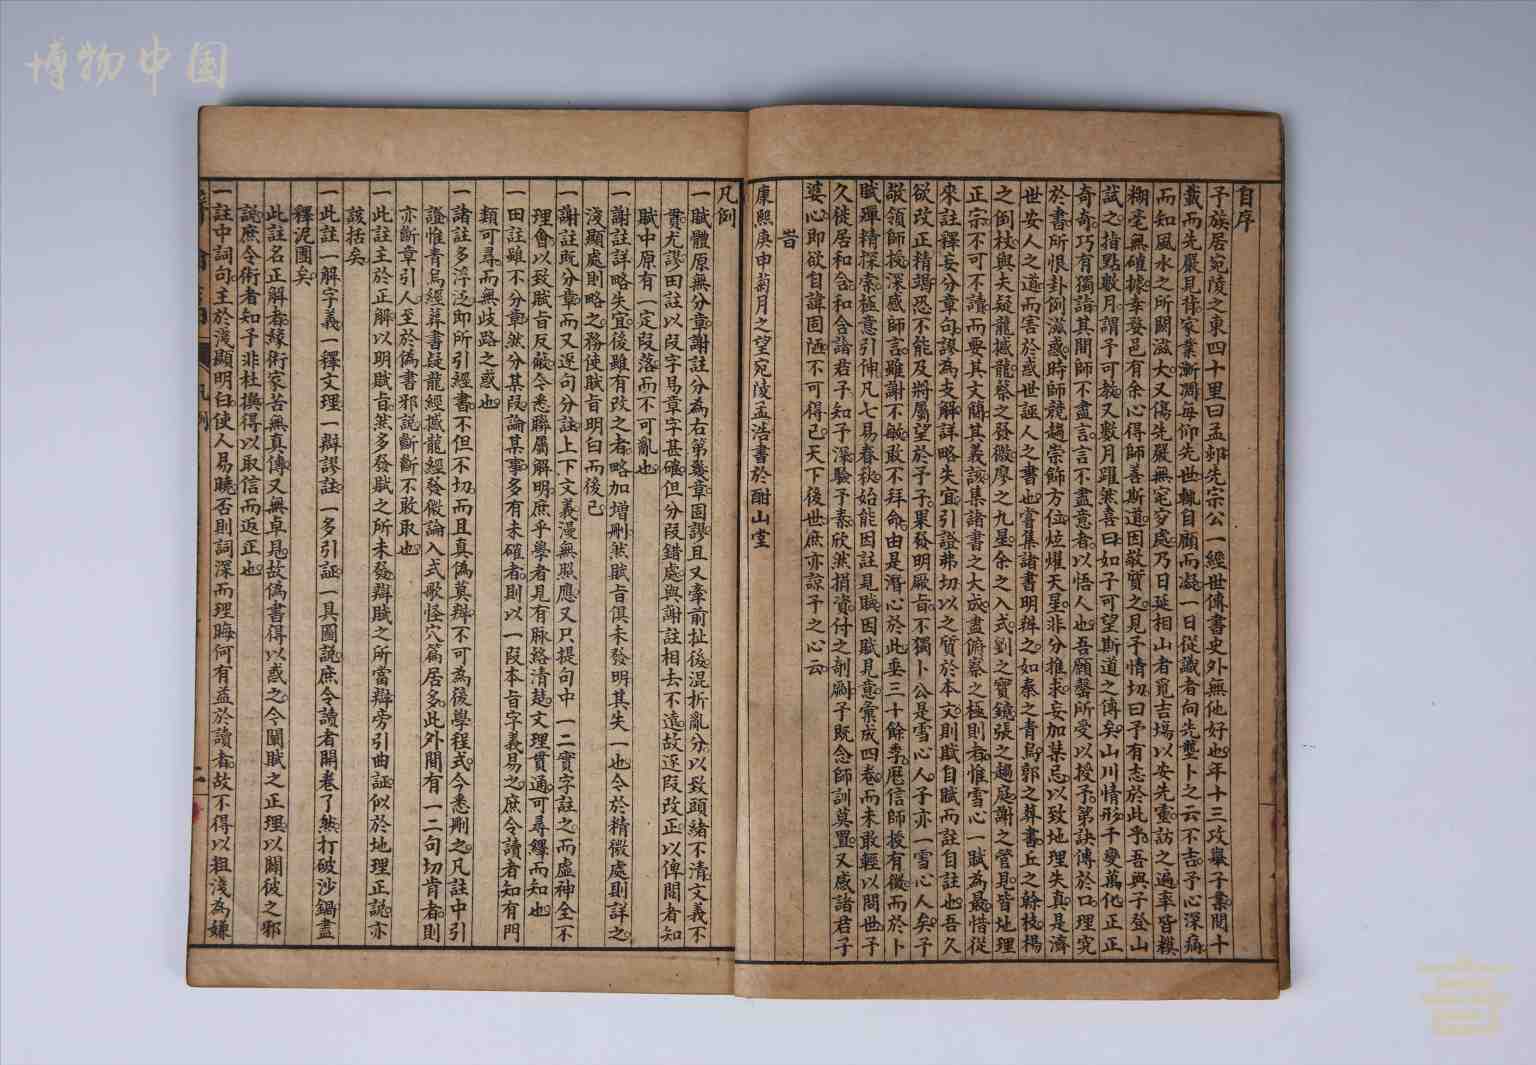 博物中国
自序
予族居宛陵之東四十里曰孟邨先宗公一經世傳書史外無他好也年十三攻舉子業閱十
載而先嚴見背家業漸凋每仰先世輒自顧而凝一日從識者向先塋卜之云不吉予心深痛
而知風水之所關滋大又傷先嚴無窀穸處乃日延相山者覓吉塲以安先靈訪之遍率皆糢
糊毫無確據幸婺邑有余心得師善斯道因敬質之見予情切曰予有志於此乎吾與子登山
試之指點數月謂予可教又數月躍然喜曰如子可望斯道之傳矣山川情形千變萬化正正
奇奇巧有獨詣其間師不盡言言不盡意者以悟人也吾願罄所受以授予第訣傳於口理究
於書所恨卦例滋惑時師競趨崇飾方位炫燿天星非分推求妄加禁忌以致地理失真是濟
世安人之道而害於惑世誣人之書也嘗集諸書明辨之如秦之青烏郭之葬書丘之榦枝楊
之倒杖與夫疑龍撼龍蔡之發微廖之九星余之入式劉之寶鏡張之趨庭謝之管見皆地理
正宗不可不讀而要其文簡其義該集諸書之大成盡俯察之極則者惟雪心一賦為最惜從
來註釋妄分章句謬為支解詳略失宜引證弗切以之質於本文則賦自賦而註自註也吾久
欲改正精竭恐不能及將屬望於予子果發明厥旨不獨卜公是雪心人子亦一雪心人矣予
敬領師授深感師言雖謝不敏敢不拜命由是潛心於此垂三十餘季厯信師授有徵而於卜
賦殫精探索極意引伸凡七易春秋始能因註見賦因賦見意彙成四卷而未敢輕以問世予
久徙居和含和含諸君子知予深驗予素欣然捐資付之剞劂予既念師訓莫置又感諸君子
婆心即欲自諱固陋不可得已天下後世庶亦諒予之心云
旹
康熙庚申菊月之望宛陵孟浩書於酣山堂
凡例
一賦體原無分章謝註分為右第幾章固謬且又牽前扯後混折亂分以致頭緒不清文義不
貫尤謬田註以段字易章字甚確但分段錯處與謝註相去不遠故逐段改正以俾閱者知
賦中原有一定段落而不可亂也
一謝註詳略失宜後雖有改之者略加增刪然賦旨俱未發明其失一也今於精微處則詳之
淺顯處則略之務使賦旨明白而後已
一謝註既分章而又逐句分註上下文義漫無照應又只提句中一二實字註之而虛神全不
理會以致賦旨反蔽今悉聯屬解明庶乎學者見有脈絡清楚文理貫通可尋繹而知也
一田註雖不分章然分其段論其事多有未確者則以一段本旨字義易之庶令讀者知有門
類可尋而無歧路之惑也
一諸註多浮泛即所引經書不但不切而且真偽莫辯不可為後學程式今悉刪之凡註中引
證惟青烏經葬書疑龍經撼龍經發微論入式歌怪穴篇居多此外間有一二句切肯者則
亦斷章引入至於偽書邪說斷斷不敢取也
一此註主於正解以明賦旨然多發賦之所未發辯賦之所當辯旁引曲証似於地理正說亦
該括矣
一此註一解字義一釋文理一辯謬註一多引証一具圖說庶令讀者開卷了然打破沙鍋盡
釋泥團矣
一此註名正解者緣術家苦無真傳又無卓見故偽書得以惑之今闡賦之正理以闢彼之邪
說庶令術者知予非杜撰得以取信而返正也
一註中詞句主於淺顯明白使人人易曉否則詞深而理晦何有益於讀者故不得以粗淺為嫌
凡例
二